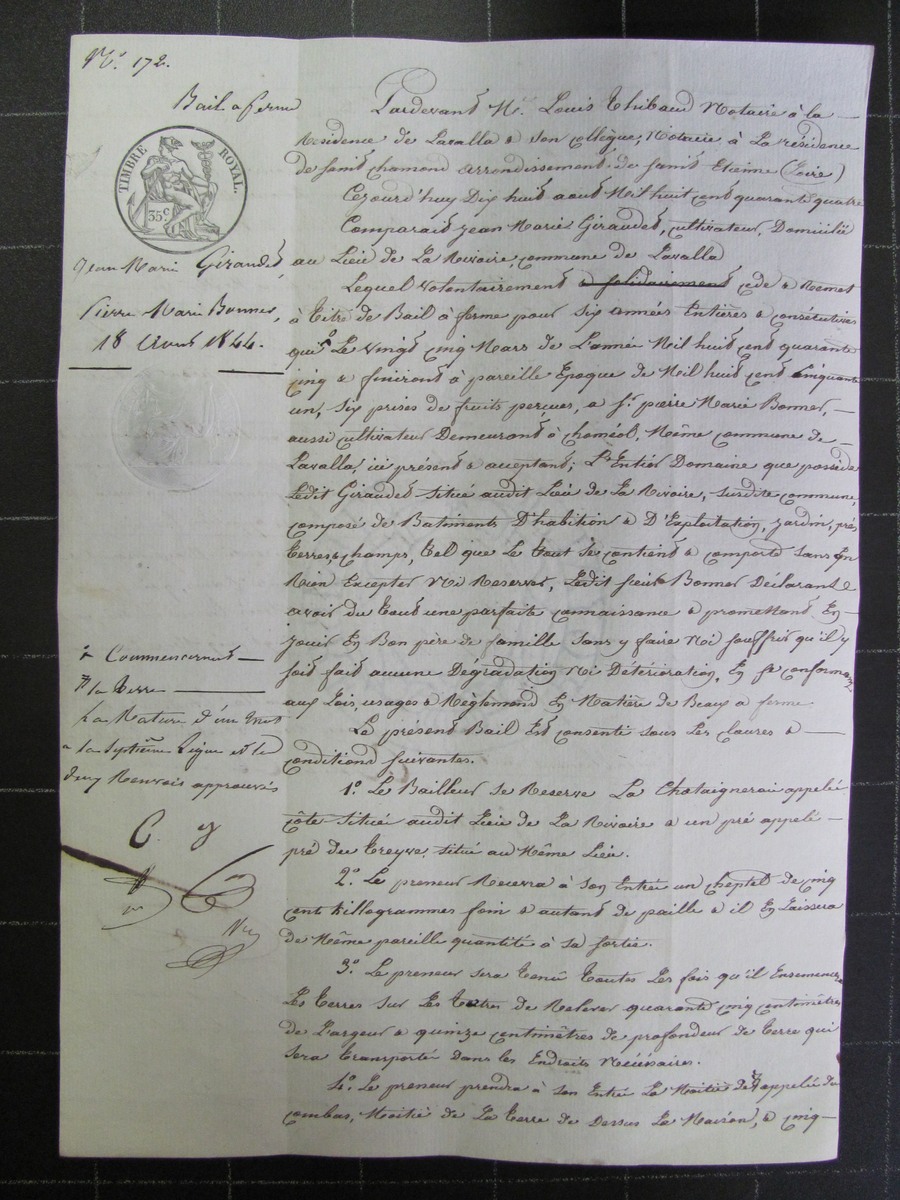 N.° 172.
Bail a ferme
TIMBRE ROYAL.
35 c
Jean Marie Giraudet,
Pierre Marie Bonner,
18 Aout 1844.
+ Commenceront
# la Terre
La Rature d'un mot
a la septième ligne et le
deux Renvois approuvés
C. g
Pardevant M.e Louis Thibaud Notaire à la
Residence de Lavalla & son collègue, Notaire à La résidence
de saint chamond arrondissement de saint Etienne (Loire)
Cejourd'huy Dix huit aout Mil huit cent quarante quatre
Comparait jean Marie Giraudet, cultivateur, Domicilié
au Lieu de La Rivoire, commune de Lavalla
Lequel volontairement & solidairement cède & Remet
à Titre de Bail à ferme pour six années Entières & consécutives
qui + Le vingt cinq Mars de L'année Mil huit cent quarante
cinq & finiront à pareille Epoque de Mil huit cent cinquante
un, six prises de fruits perçues, a s.r pierre Marie Bonner,
aussi cultivateur Demeurant à choméol, Même commune de
Lavalla, ici présent & acceptant; L'Entier Domaine que possède
Ledit Giraudet situé audit Lieu de La Rivoire, susdite commune,
composé de Batiments D'habition & D'Exploitation, jardin, prés
Terres, champs, Tel que Le Tout se contient & comporte sans En
Rien Excepter Ni Reserver, Ledit sieur Bonner Déclarant
avoir du Tout une parfaite connaissance & promettant En
jouir En Bon père de famille sans y faire Ni souffrir qu'il y
soit fait aucune Dégradation Ni Détérioration, En se conformant
aux Lois, usages & Règlement En Matière de Beaux a ferme.
Le présent Bail Est consenti sous Les clauses &
conditions suivantes.
1.° Le Bailleur se Reserve La Chataignerai appelé
côte située audit Lieu de La Rivoire & un pré appelé
pré du Treyve, situé au Même Lieu.
2.° Le preneur Recevra à son Entrée un cheptel de cinq
cent killogrammes foin & autant de paille & il En Laissera
de Même pareille quantité à sa sortie.
3.° Le preneur sera Tenû Toutes Les fois qu'il Ensemencera
Les Terres sur Les de Relever quarante cinq centimètres
de Largeur & quinze centimètres de profondeur de Terre qui
sera transportée Dans les Endroits Nécéssaires.
4.° Le preneur prendra à son Entrée La Moitié de # appelée du
combas, Moitié de La Terre de Dessus La Maison, & cinq